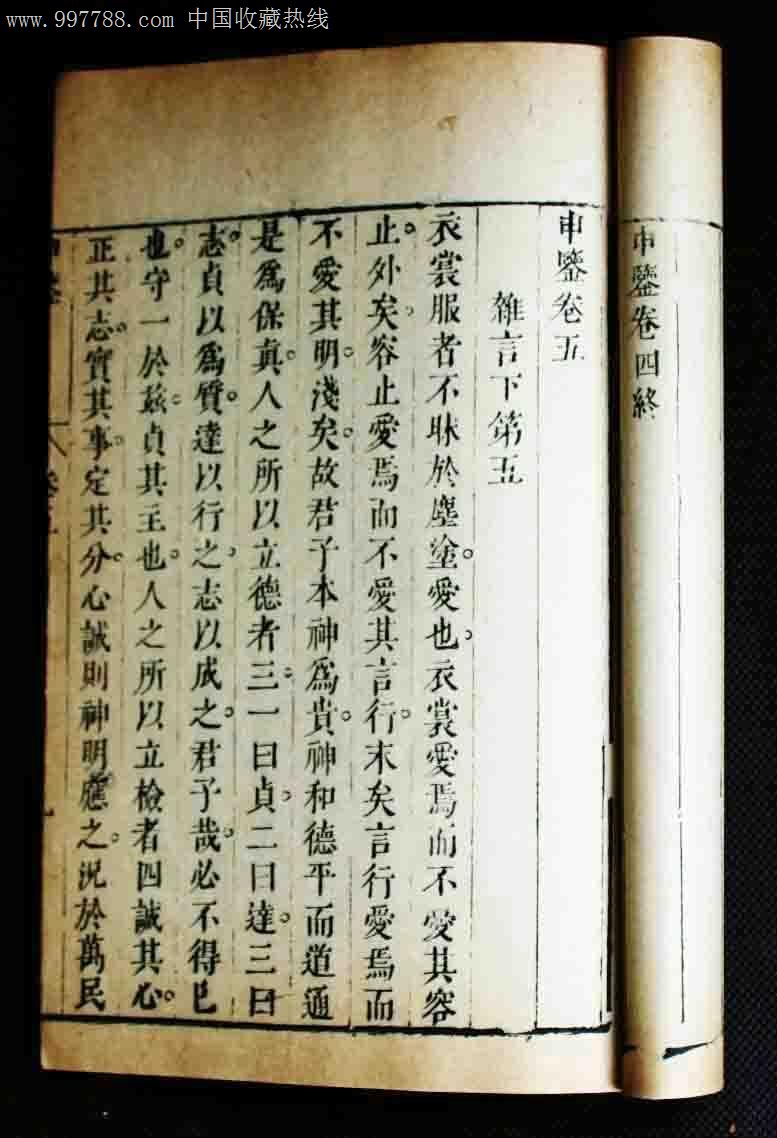 www.997788.com 中国收藏热线
申鑒卷四終
申鑒卷五
雜言下第五
衣裳服者不昧於塵塗。愛也。衣裳愛焉而不愛其容
止。外矣。容止愛焉而不愛其言行。末矣言行愛焉而
不愛其明。淺矣。故君子本神爲貴。神和德平而道通
是爲保眞。人之所以立德者三。一曰貞。二曰達。三曰
志。貞以爲質。達以行之。志以成之。君子哉。必不得已
也。守一於兹。貞其主也。人之所以立檢者四誠其心。
正其志。實其事。定其分。心誠則神明應之。況於萬民